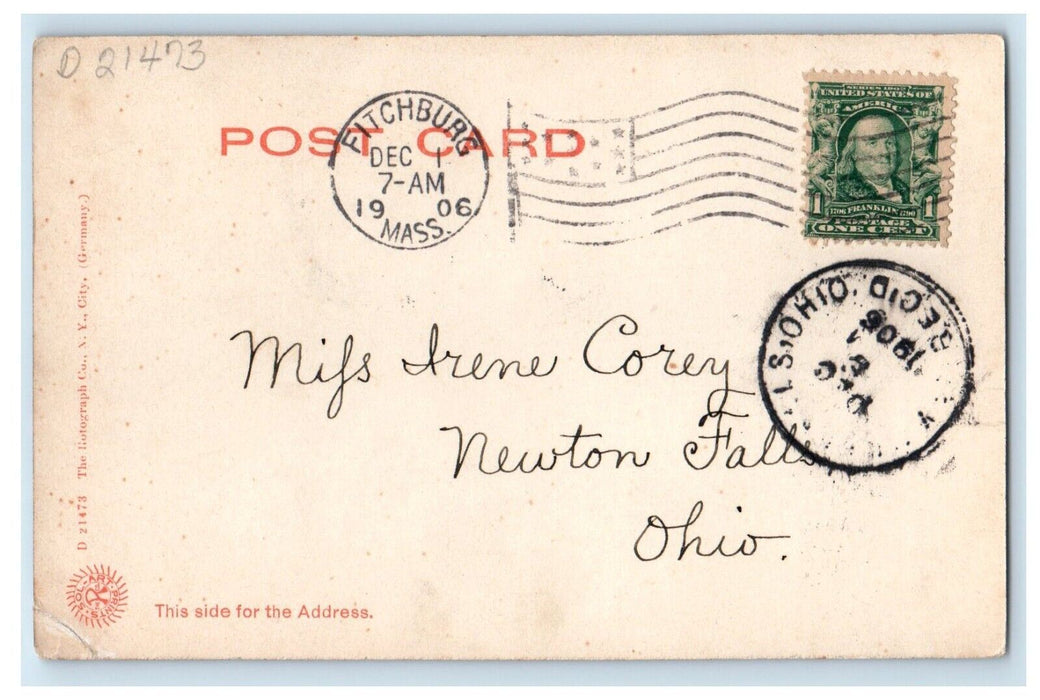 D 21473
POST CARD
FITCHBURG
DEC 1
7-AM
1906
MASS.
SERIES 1902
UNITED STATES OF
AMERICA
1 1706 FRANKLIN 1790 1
POSTAGE
ONE CENT
REC'D.
LS, OHIO
DEC
1906
Miss Irene Corey
Newton Falls
Ohio.
D 21473 The Rotograph Co., N. Y., City. (Germany.)
SOL-ART-PRINTS
R
This side for the Address.